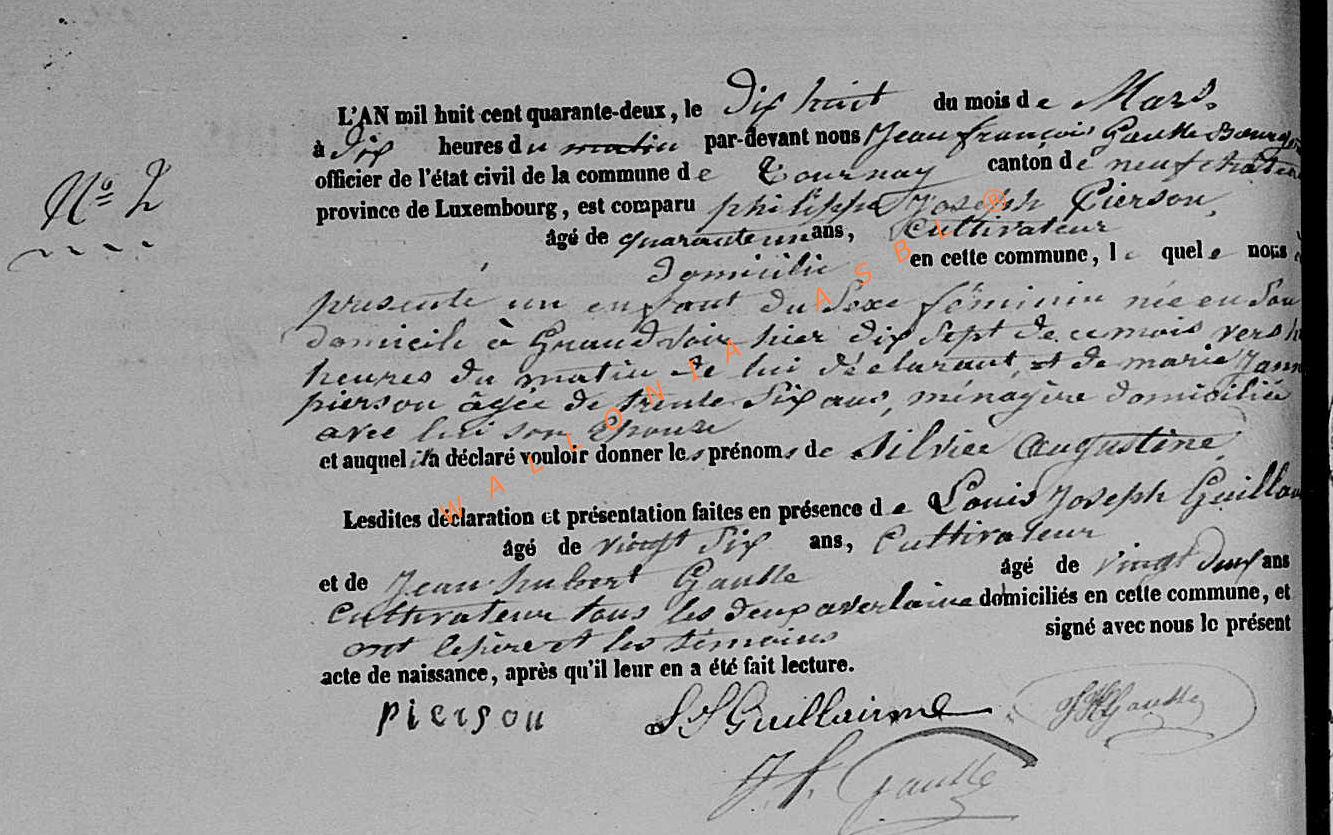 L'AN mil huit cent quarante-deux, le Dix huit du mois de Mars.
à Dix heures du matin par-devant nous Jean françois Gaulle Bourg
officier de l'état civil de la commune de Tournay canton de neufchateau
province de Luxembourg, est comparu philippe Joseph Pierson,
âgé de quarante un ans, Cultivateur
Nº 2
domicilié en cette commune, lequel nous
presente un enfant du Sexe féminin née en Son
domicile à Grandvoir hier dix Sept de ce mois vers
heures du matin de lui déclarant, et de marie Jann
pierson âgée de trente Six ans, ménagère domiciliée
avec lui son Epouse
et auquel il a déclaré vouloir donner les prénoms de Silvie Augustine,
Lesdites déclaration et présentation faites en présence de Louis Joseph Guillau
âgé de vingt Six ans, Cultivateur
et de Jean hubert Gaulle âgé de vingt deux ans
Cultivateur tous les deux a verlaine domiciliés en cette commune, et
ont le père et les témoins signé avec nous le présent
acte de naissance, après qu'il leur en a été fait lecture.
pierson LJ Guillaume JH Gaulle
J. f. Gaulle
WALLONIA ASBL ®